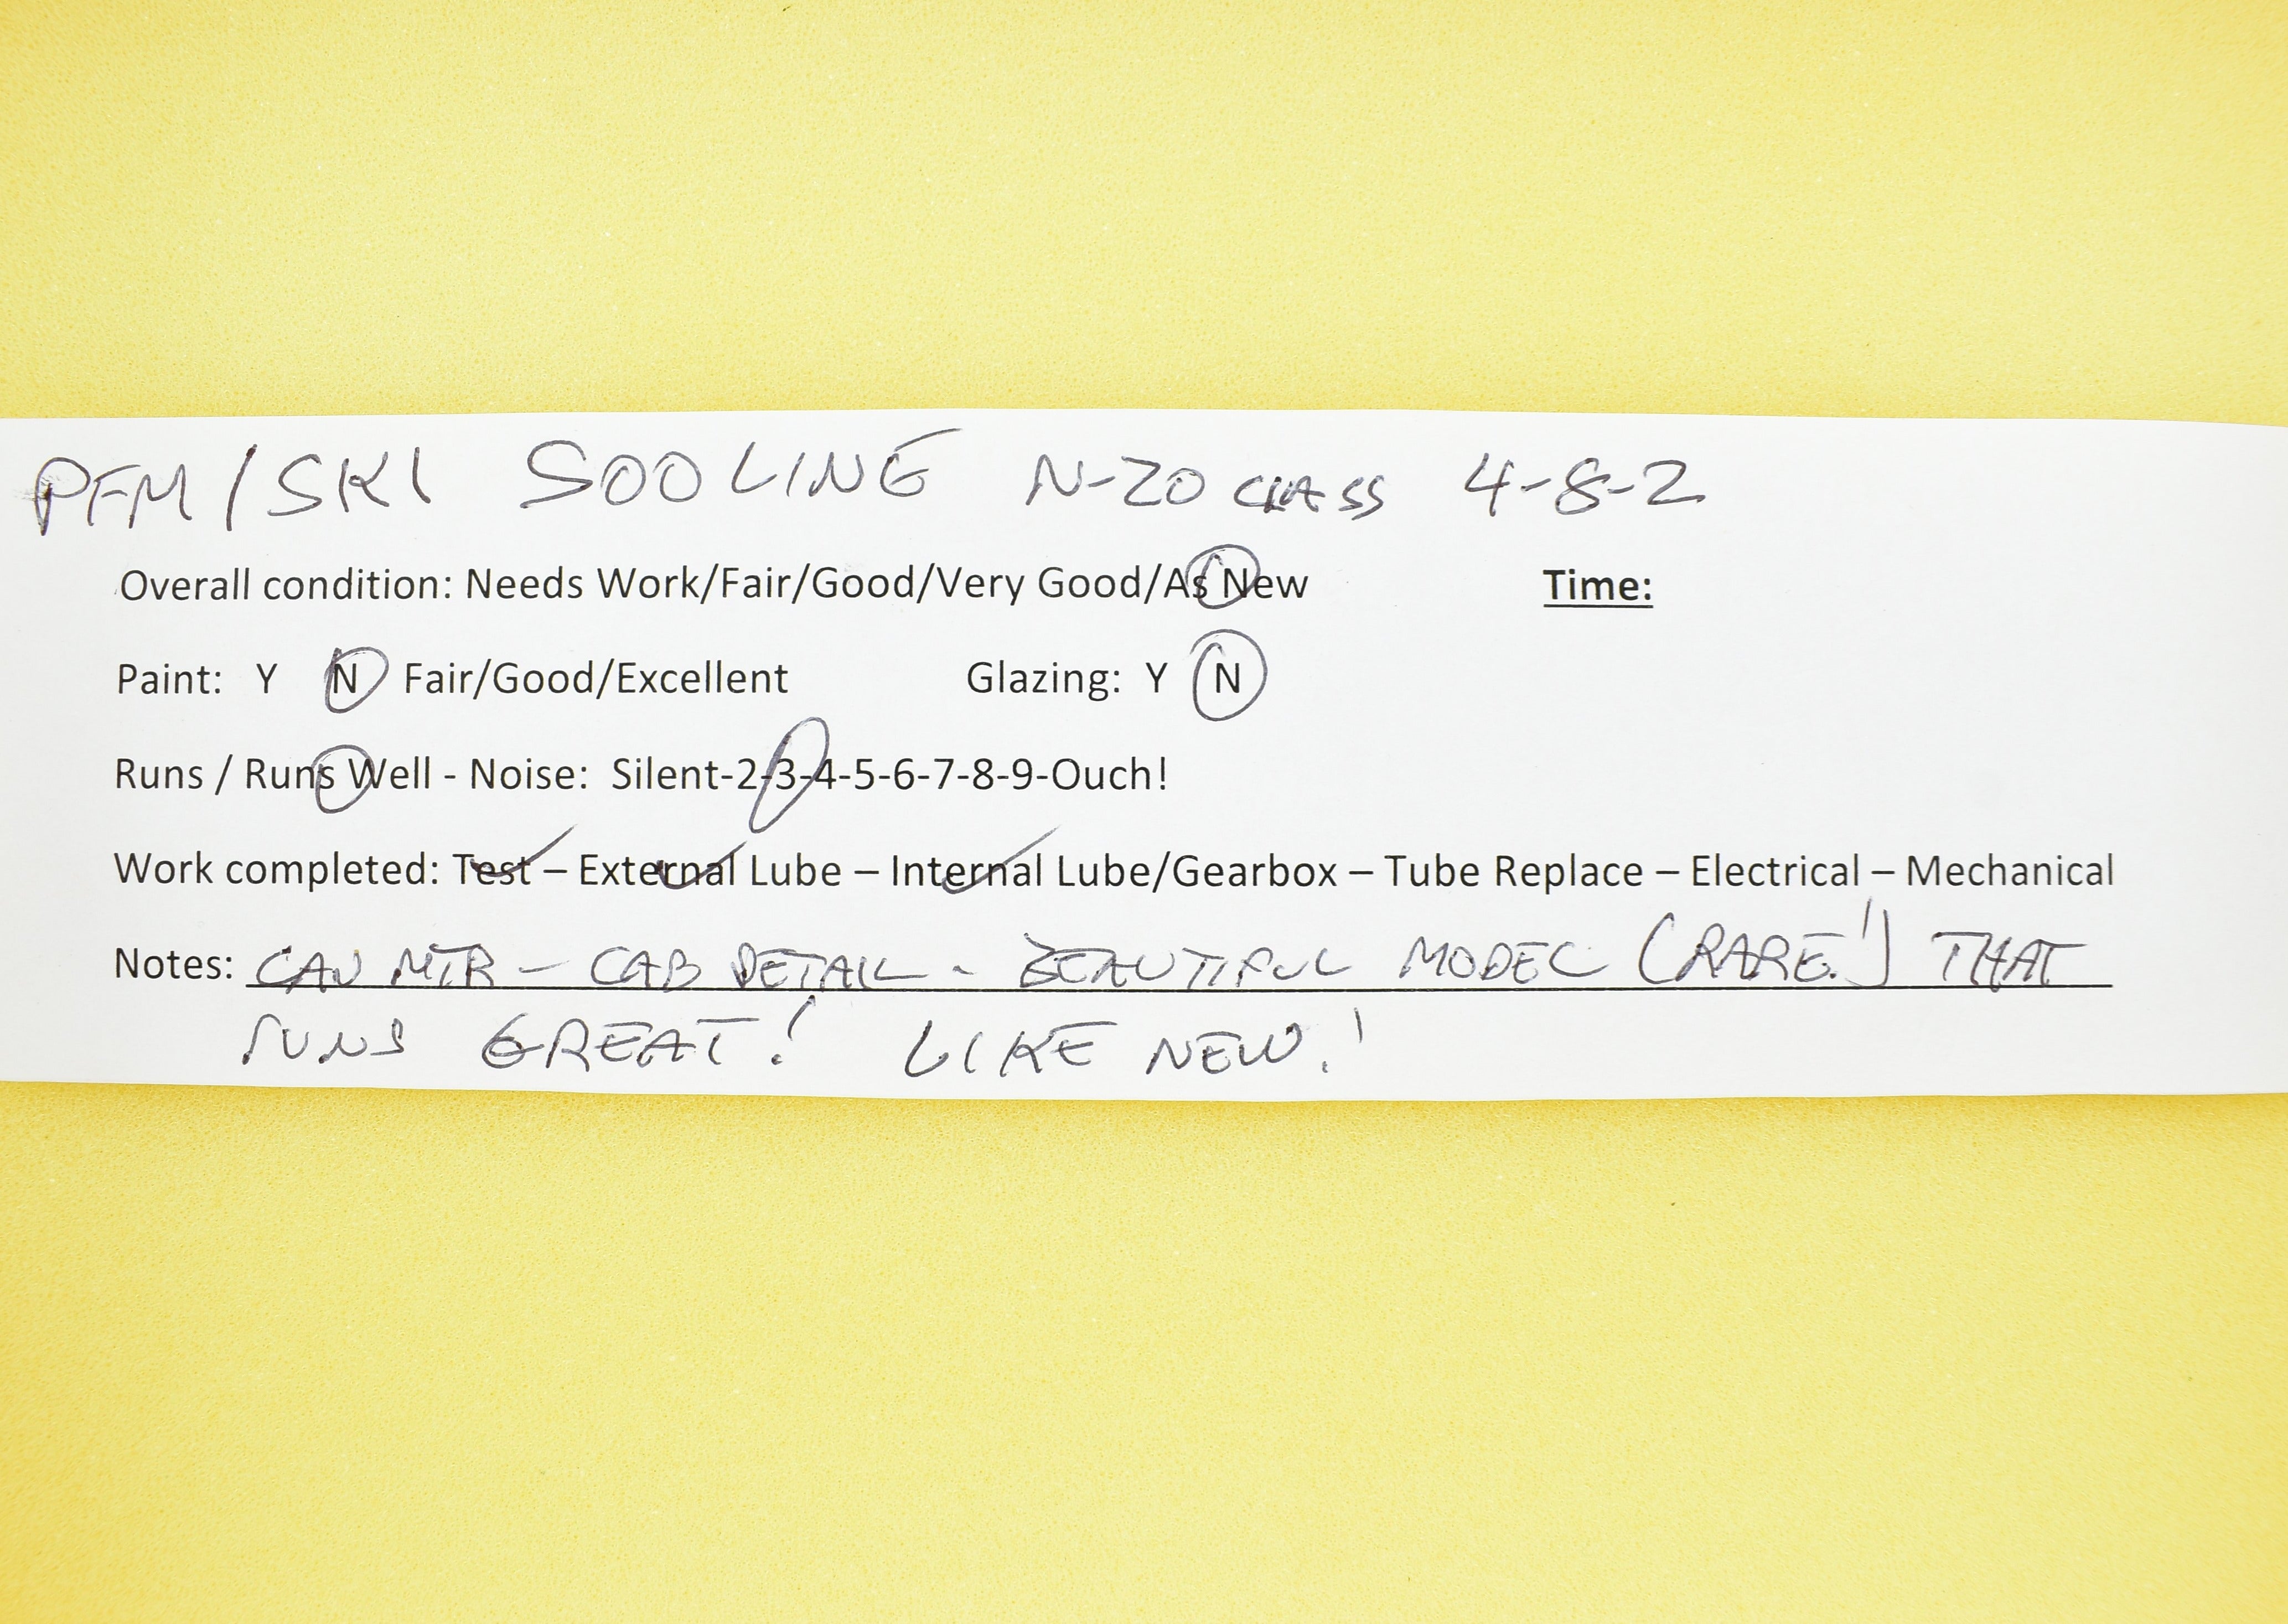 PFM/SKI SOO LINE N-20 CLASS 4-8-2
Overall condition: Needs Work/Fair/Good/Very Good/As New Time:
Paint: Y N Fair/Good/Excellent Glazing: Y N
Runs / Runs Well - Noise: Silent-2-3-4-5-6-7-8-9-Ouch!
Work completed: Test – External Lube – Internal Lube/Gearbox – Tube Replace – Electrical – Mechanical
Notes: CAN MTR - CAB DETAIL - BEAUTIFUL MODEL (RARE!) THAT
RUNS GREAT! LIKE NEW!